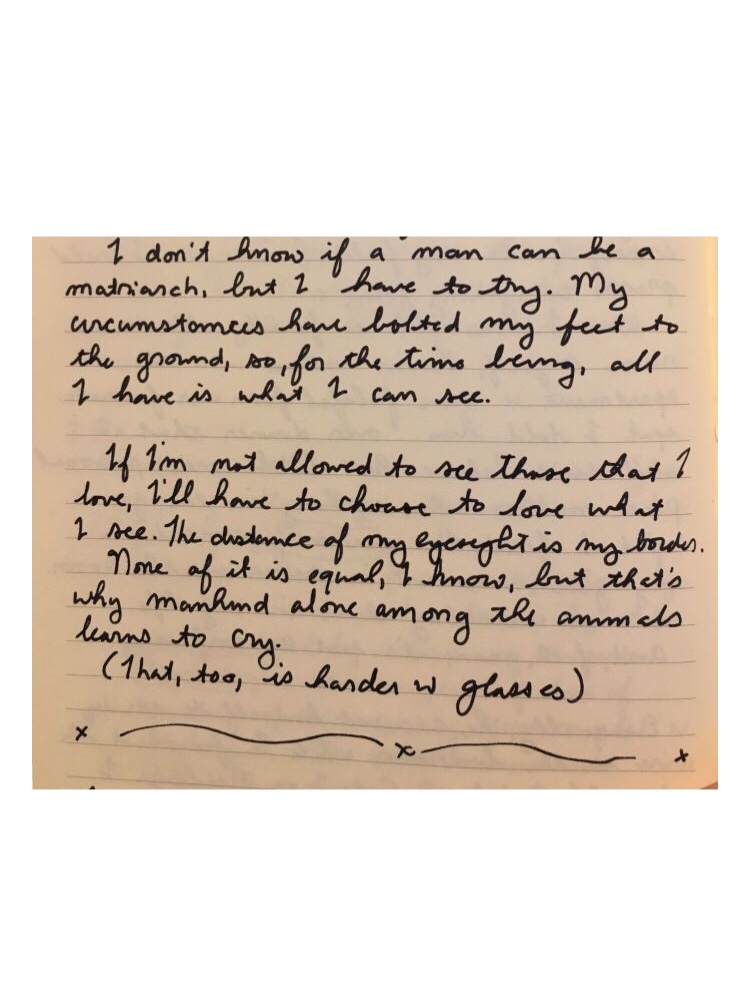 I don't know if a man can be a
matriarch, but I have to try. My
circumstances have bolted my feet to
the ground, so, for the time being, all
I have is what I can see.
If I'm not allowed to see those that I
love, I'll have to choose to love what
I see. The distance of my eyesight is my border.
None of it is equal, I know, but that's
why mankind alone among the animals
learns to cry.
(That, too, is harder w glasses)
x x x